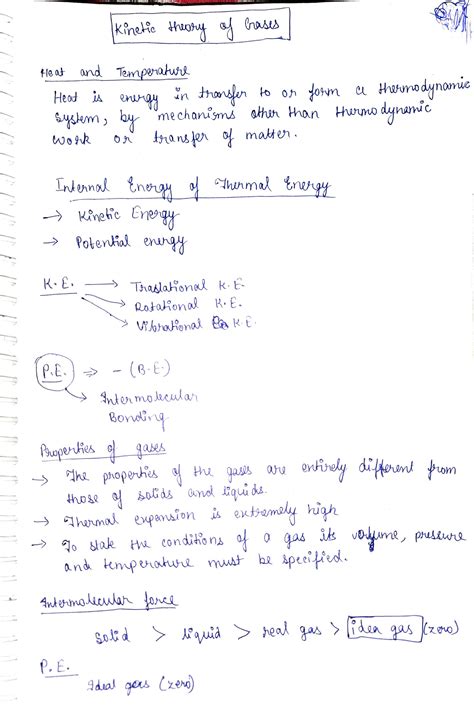 Kinetic theory of Gases
Heat and Temperature
Heat is energy in transfer to or form a thermodynamic
system, by mechanisms other than thermodynamic
work or transfer of matter.
Internal Energy of Thermal Energy
→ Kinetic Energy
→ Potential energy
K.E. → Traslational K.E.
→ Rotational K.E.
→ Vibrational K.E.
P.E. ⇒ - (B.E.)
→ Intermolecular
Bonding
Properties of gases
→ The properties of the gases are entirely different from
those of solids and liquids.
→ Thermal expansion is extremely high
→ To state the conditions of a gas its volume, pressure
and temperature must be specified.
Intermolecular force
Solid > liquid > real gas > idea gas (zero)
P.E.
Ideal gas (zero)